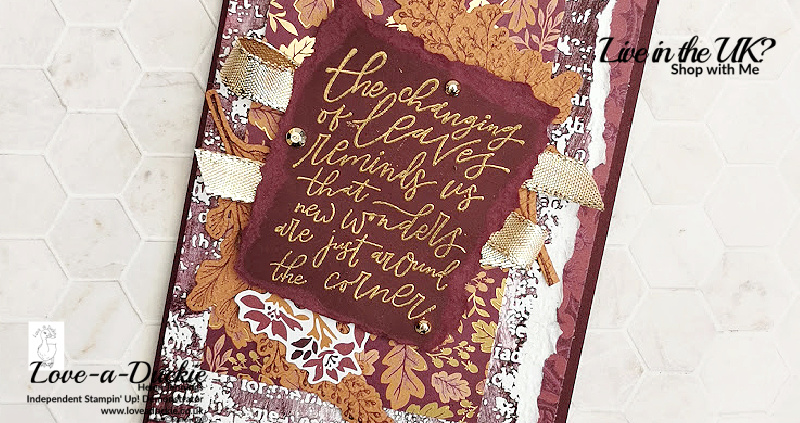 Live in the UK?
Shop with Me
the changing
of leaves
reminds us
that
new wonders
are just around
the corner!
Love-a-Duckie
Independent Stampin' Up! Demonstrator
www.loveaduckie.co.uk